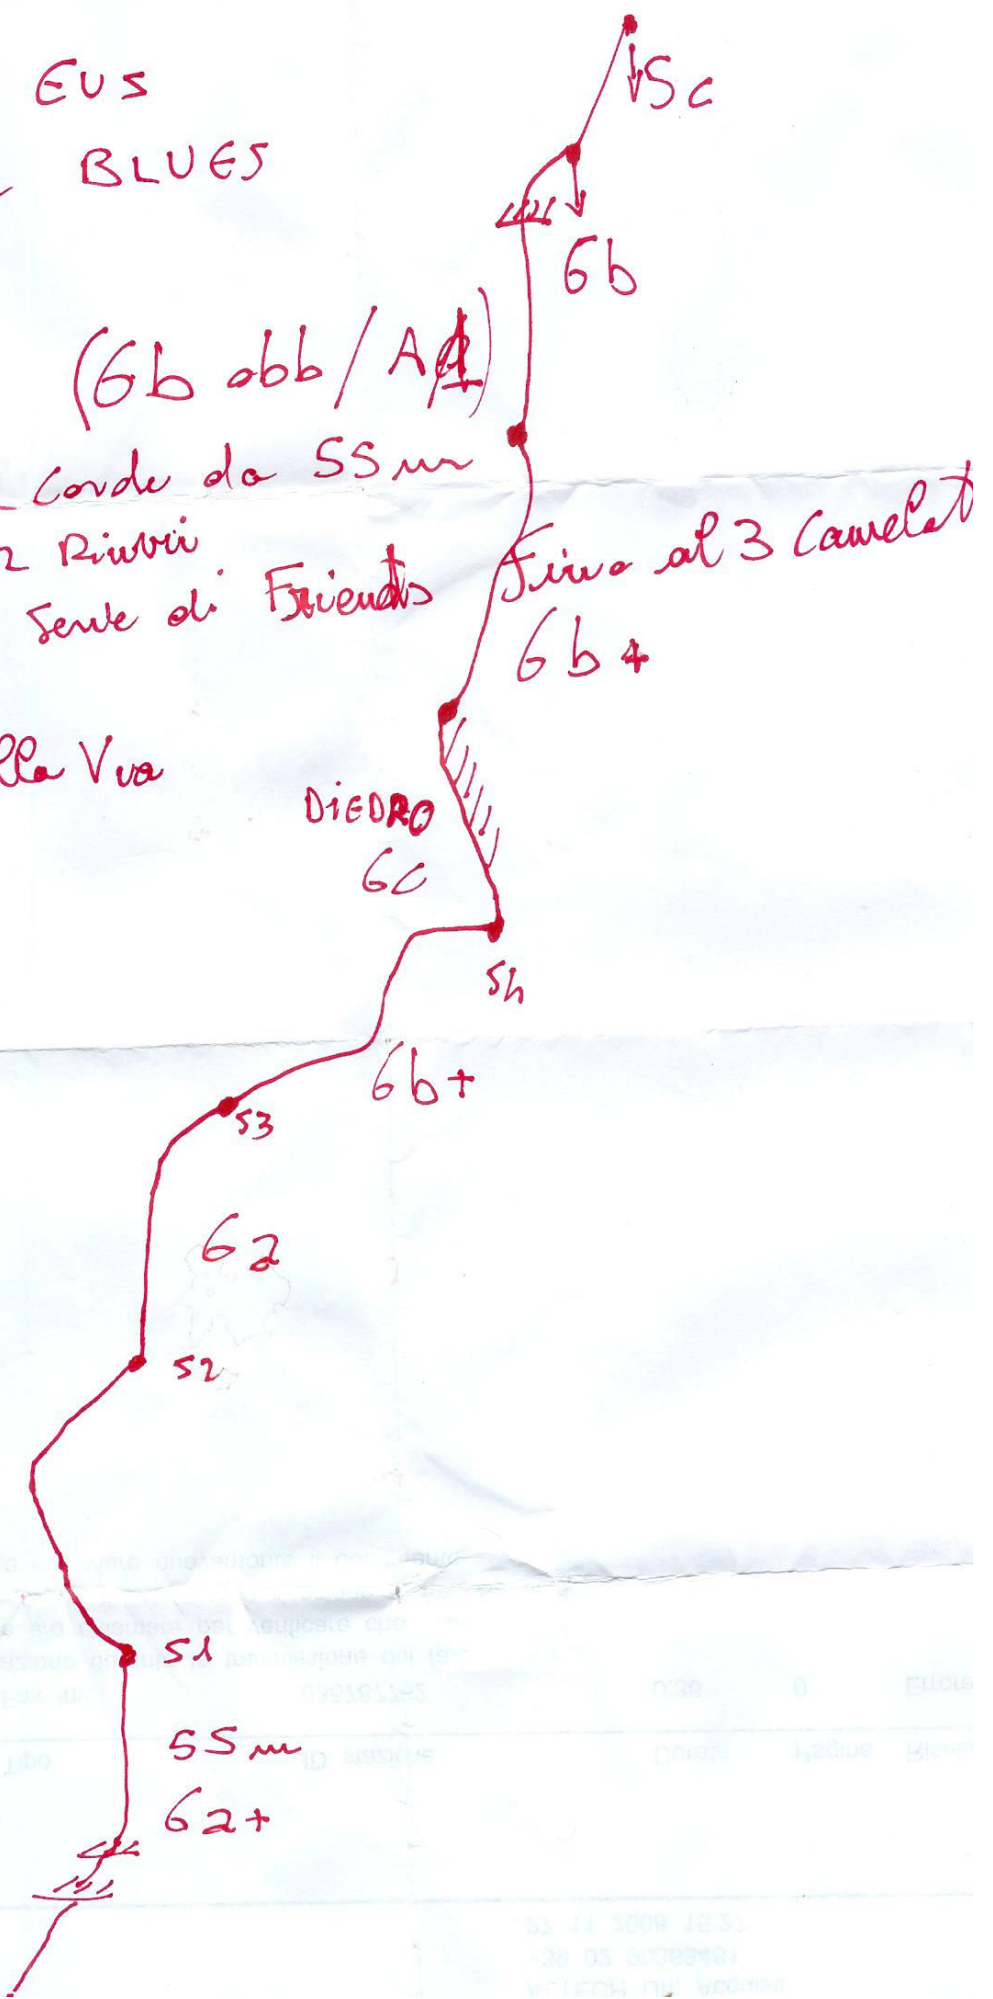 EUS
BLUES
5c
6b
(6b obb / A1)
Corde da 55m
2 Rinvii
Serie di Friends Fino al 3 Camelot
6b+
lla Via
DIEDRO
6c
S4
6b+
S3
6a
S2
S1
55m
6a+